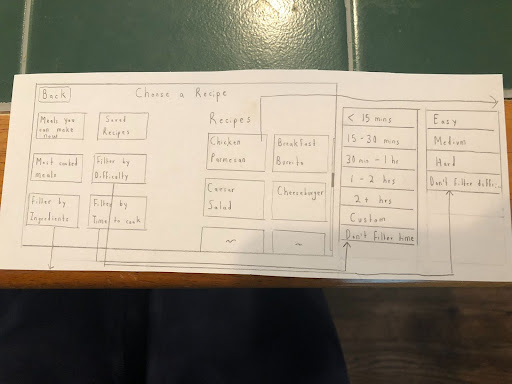 Back
Choose a Recipe
Meals you
can make
now
Saved
Recipes
Most cooked
meals
Filter by
Difficulty
Filter by
Ingredients
Filter by
Time to cook
Recipes
Chicken
Parmesan
Breakfast
Burrito
Caesar
Salad
Cheeseburger
~
~
< 15 mins
15-30 mins
30 min - 1 hr
1 - 2 hrs
2+ hrs
Custom
Don't filter time
Easy
Medium
Hard
Don't filter diffi...